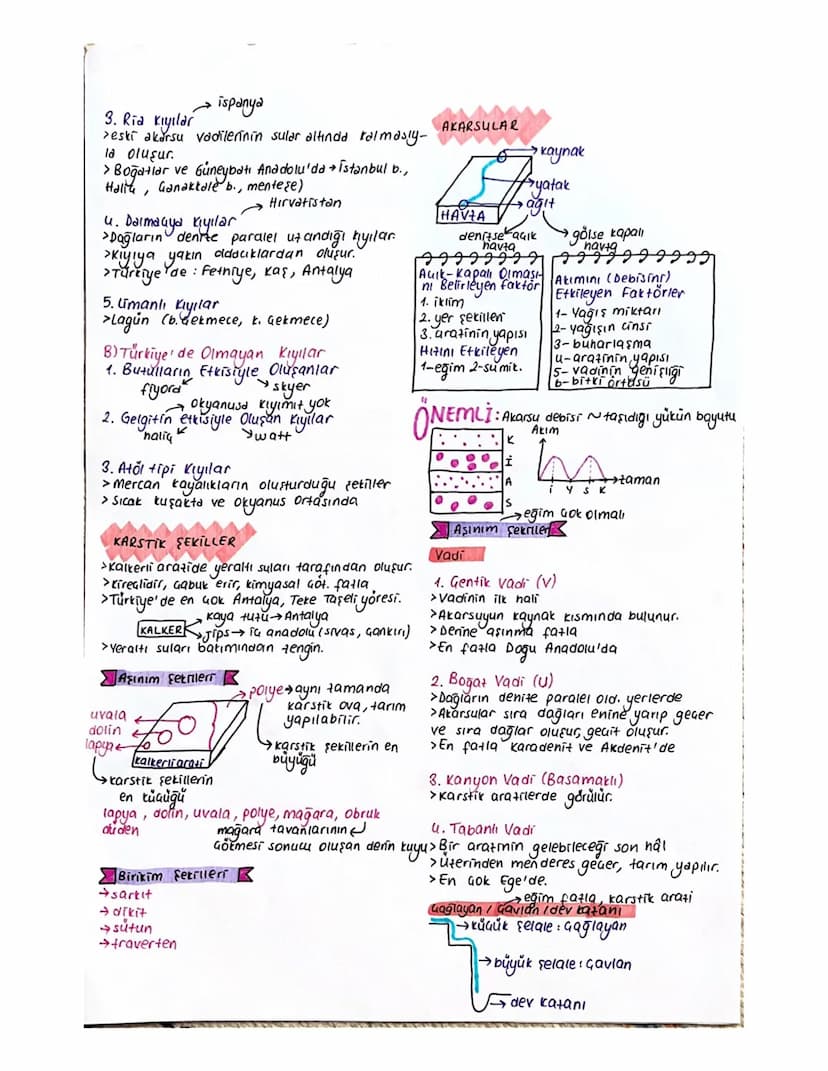 İspanya
3. Ria Kıyılar
>eski akarsu vadilerinin sular altında kalmasıy-
la oluşur.
> Boğazlar ve Güneybatı Anadolu'da → İstanbul b.,
Haliç, Çanakkale b., menteşe)
Hırvatistan
4. Dalmaçya Kıyılar
>Dağların denize paralel uzandığı kıyılar.
>Kıyıya yakın adacıklardan oluşur.
>Türkiye'de : Fethiye, Kaş, Antalya
5. Limanlı Kıyılar
>Lagün (b. Çekmece, k. Çekmece)
B) Türkiye'de Olmayan Kıyılar
1. Buzulların Etkisiyle Oluşanlar
fiyord skyer
okyanusa kıyımız yok
2. Gelgitin etkisiyle Oluşan Kıyılar
haliç watt
3. Atöl tipi Kıyılar
> Mercan kayalıkların oluşturduğu şekiller
> Sıcak kuşakta ve okyanus ortasında
KARSTİK ŞEKİLLER
>Kalkerli arazide yeraltı suları tarafından oluşur.
>Kireçlidir, çabuk erir, kimyasal çöz. fazla
>Türkiye'de en çok Antalya, Teke Taşeli yöresi.
kaya tuzu → Antalya
KALKER
jips → iç anadolu (sivas, çankırı)
>Yeraltı suları bakımından zengin.
Aşınım Şekilleri
polye → aynı zamanda
karstik ova, tarım
yapılabilir.
uvala
dolin
lapya
karstik şekillerin en
büyüğü
kalkerli arazi
karstik şekillerin
en küçüğü
lapya, dolin, uvala, polye, mağara, obruk
düden
mağara tavanlarının
çökmesi sonucu oluşan derin kuyu
Birikim Şekilleri
→ sarkıt
→ dikit
→ sütun
→ traverten
AKARSULAR
kaynak
yatak
ağız
HAVZA
denizse açık
havza
gölse kapalı
havza
Açık-Kapalı Olması-
nı Belirleyen Faktör
1. iklim
2. yer şekilleri
3. arazinin yapısı
Hızını Etkileyen
1-eğim 2-su mik.
Akımını (Debisini)
Etkileyen Faktörler
1- Yağış miktarı
2- yağışın cinsi
3- buharlaşma
4- arazinin yapısı
5- vadinin genişliği
6- bitki örtüsü
ÖNEMLİ: Akarsu debisi ~ taşıdığı yükün boyutu
K
İ
A
S
Akım
zaman
İ Y S K
eğim çok olmalı
Aşınım Şekilleri
Vadi
1. Çentik Vadi (V)
>Vadinin ilk hali
>Akarsuyun kaynak kısmında bulunur.
>Derine aşınma fazla
>En fazla Doğu Anadolu'da
2. Boğaz Vadi (U)
>Dağların denize paralel old. yerlerde
>Akarsular sıra dağları enine yarıp geçer
ve sıra dağlar oluşur, geçit oluşur.
>En fazla Karadeniz ve Akdeniz'de
3. Kanyon Vadi (Basamaklı)
>Karstik arazilerde görülür.
4. Tabanlı Vadi
>Bir arazinin gelebileceği son hâl
>Üzerinden menderes geçer, tarım yapılır.
>En çok Ege'de.
eğim fazla, karstik arazi
Çağlayan / Çavlan / dev kazanı
küçük şelale : Çağlayan
büyük şelale : Çavlan
dev kazanı